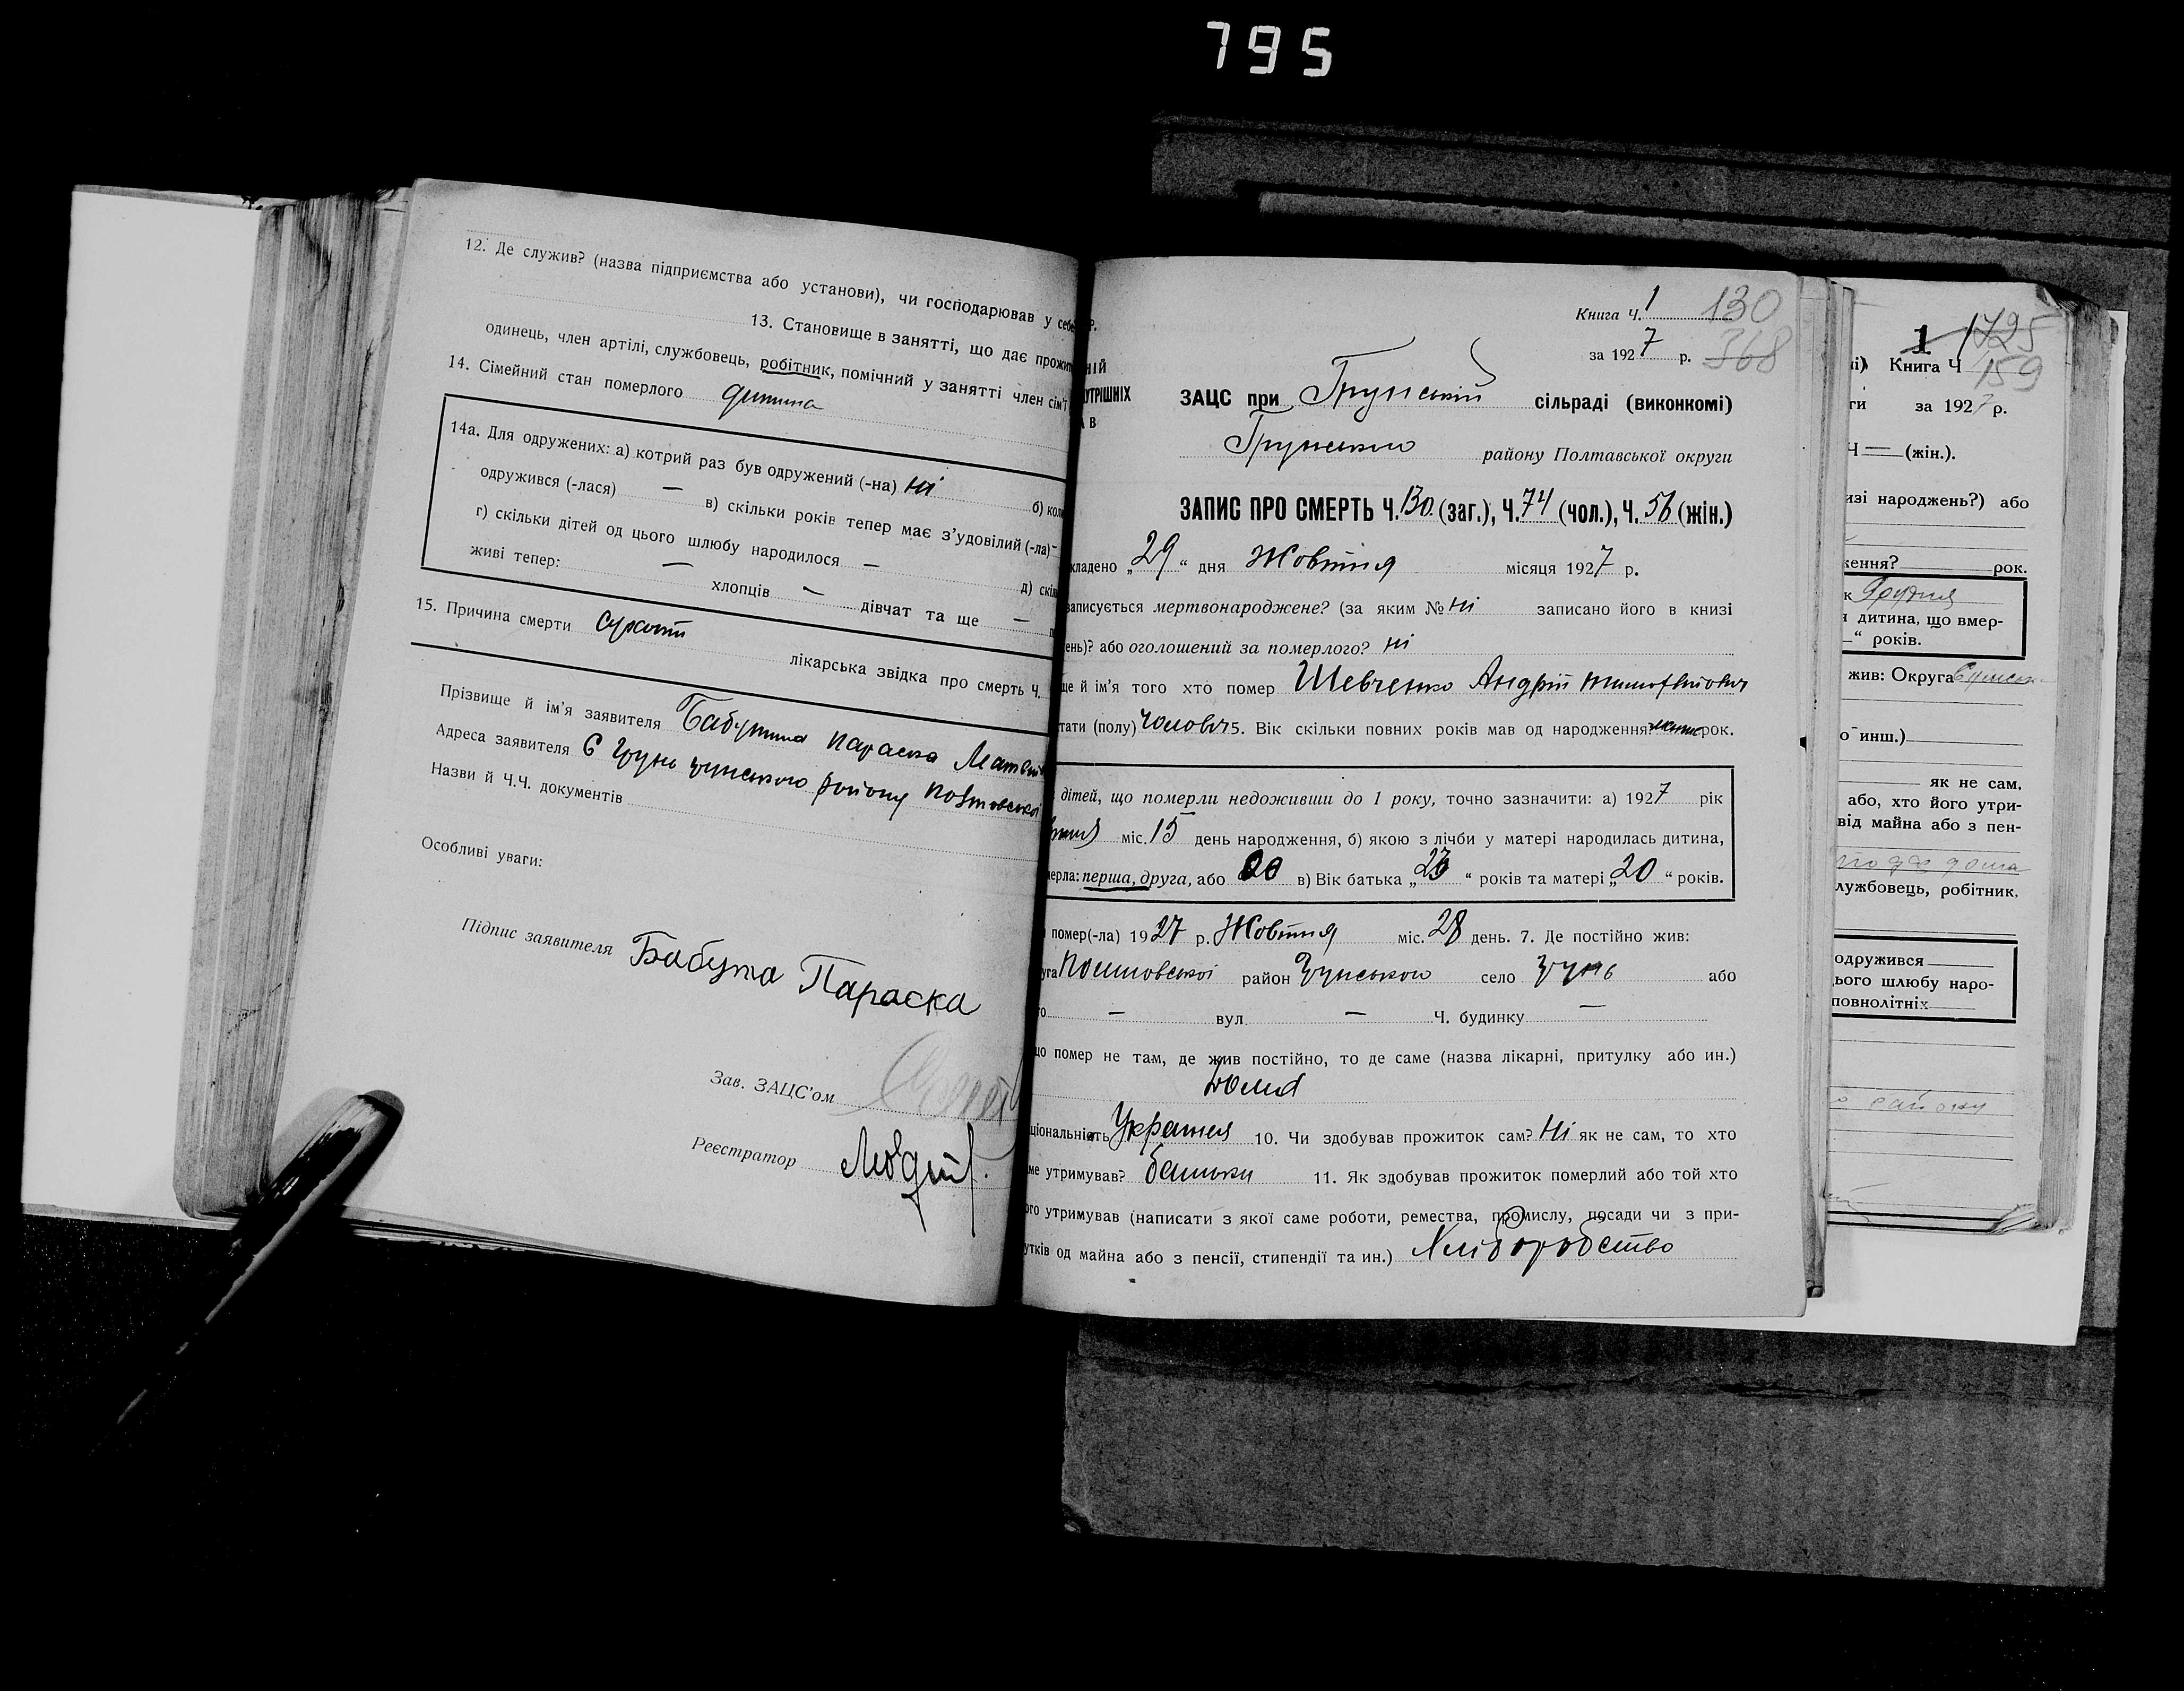 795
12. Де служив? (назва підприємства або установи), чи господарював у себе
13. Становище в занятті, що дає прожит
одинець, член артілі, службовець, робітник, помічний у занятті член сім'ї
14. Сімейний стан померлого дитина
14а. Для одружених: а) котрий раз був одружений (-на) ні б) коли
одружився (-лася) — в) скільки років тепер має з'удовілий (-ла) -
г) скільки дітей од цього шлюбу народилося — д) скіль
живі тепер: — хлопців — дівчат та ще — п
15. Причина смерти
лікарська звідка про смерть Ч.
Прізвище й ім'я заявителя Параска
Адреса заявителя С Грунь грунського району
Назви й Ч.Ч. документів
Особливі уваги:
Підпис заявителя Бабута Параска
Зав. ЗАЦС'ом
Реєстратор
Р.
НІЙ
УТРІШНІХ
А В
Книга Ч. 1 130
за 1927 р. 368
ЗАЦС при Грунській сільраді (виконкомі)
Грунського району Полтавської округи
ЗАПИС ПРО СМЕРТЬ Ч. 130 (заг.), Ч. 74 (чол.), Ч. 56 (жін.)
кладено „29“ дня Жовтня місяця 1927 р.
записується мертвонароджене? (за яким № ні записано його в книзі
ень)? або оголошений за померлого? ні
ще й ім'я того хто помер Шевченко Андрій
тати (полу) чолов 5. Вік скільки повних років мав од народження? рок.
дітей, що померли недоживши до 1 року, точно зазначити: а) 1927 рік
міс. 15 день народження, б) якою з лічби у матері народилась дитина,
мерла: перша, друга, або в) Вік батька „23“ років та матері „20“ років.
помер(-ла) 1927 р. Жовтня міс. 28 день. 7. Де постійно жив:
уга район Грунського село Грунь або
го — вул — Ч. будинку —
що помер не там, де жив постійно, то де саме (назва лікарні, притулку або ин.)
дома
ціональність 10. Чи здобував прожиток сам? Ні як не сам, то хто
ме утримував? батьки 11. Як здобував прожиток померлий або той хто
ого утримував (написати з якої саме роботи, ремества, промислу, посади чи з при-
утків од майна або з пенсії, стипендії та ин.) Хліборобство
1 1725
і) Книга Ч 159
ги за 1927 р.
Ч — (жін.).
изі народжень?) або
ження? рок.
к Грудня
я дитина, що вмер-
“ років.
жив: Округа
о инш.)
як не сам,
або, хто його утри-
від майна або з пен-
лужбовець, робітник,
одружився
ього шлюбу наро-
повнолітніх
району